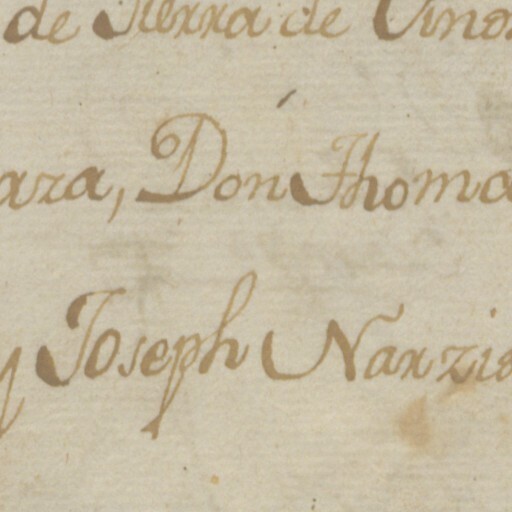 de Tierra de Vino
ara, Don Thoma
y Joseph Narzis